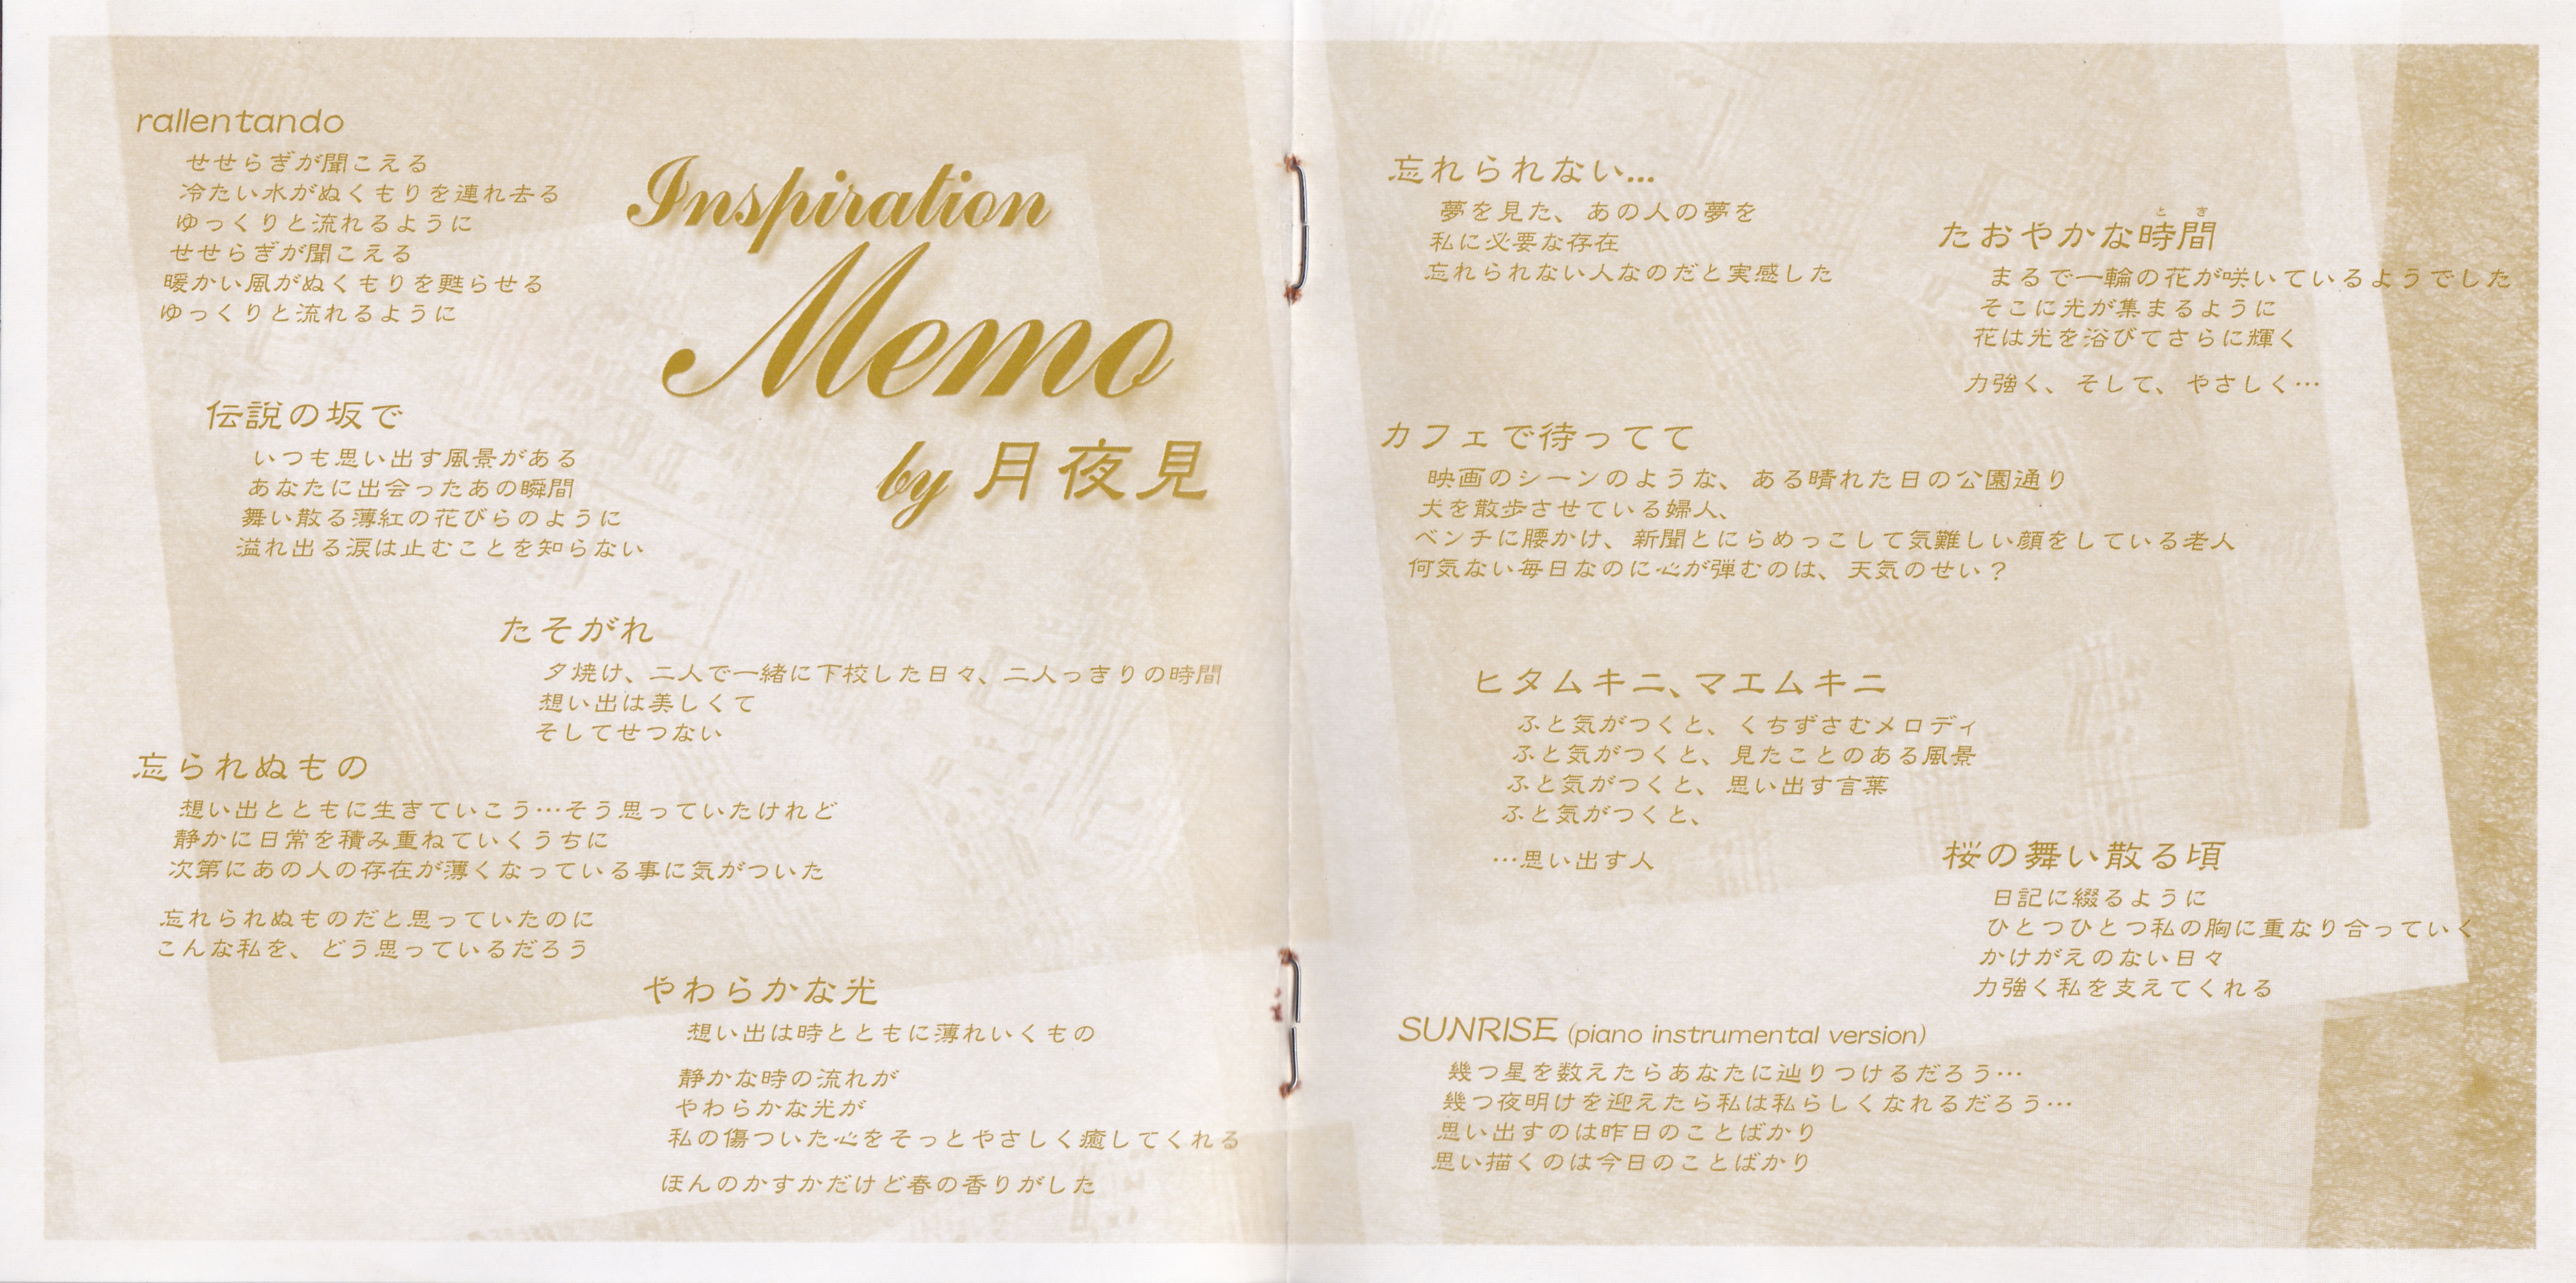 rallentando
せせらぎが聞こえる
冷たい水がぬくもりを連れ去る
ゆっくりと流れるように
せせらぎが聞こえる
暖かい風がぬくもりを甦らせる
ゆっくりと流れるように
Inspiration
Memo
by 月夜見
伝説の坂で
いつも思い出す風景がある
あなたに出会ったあの瞬間
舞い散る薄紅の花びらのように
溢れ出る涙は止むことを知らない
たそがれ
夕焼け、二人で一緒に下校した日々、二人っきりの時間
想い出は美しくて
そしてせつない
忘られぬもの
想い出とともに生きていこう…そう思っていたけれど
静かに日常を積み重ねていくうちに
次第にあの人の存在が薄くなっている事に気がついた
忘れられぬものだと思っていたのに
こんな私を、どう思っているだろう
やわらかな光
想い出は時とともに薄れいくもの
静かな時の流れが
やわらかな光が
私の傷ついた心をそっとやさしく癒してくれる
ほんのかすかだけど春の香りがした
忘れられない...
夢を見た、あの人の夢を
私に必要な存在
忘れられない人なのだと実感した
とき
たおやかな時間
まるで一輪の花が咲いているようでした
そこに光が集まるように
花は光を浴びてさらに輝く
力強く、そして、やさしく…
カフェで待ってて
映画のシーンのような、ある晴れた日の公園通り
犬を散歩させている婦人、
ベンチに腰かけ、新聞とにらめっこして気難しい顔をしている老人
何気ない毎日なのに心が弾むのは、天気のせい？
ヒタムキニ、マエムキニ
ふと気がつくと、くちずさむメロディ
ふと気がつくと、見たことのある風景
ふと気がつくと、思い出す言葉
ふと気がつくと、
…思い出す人
桜の舞い散る頃
日記に綴るように
ひとつひとつ私の胸に重なり合っていく
かけがえのない日々
力強く私を支えてくれる
SUNRISE (piano instrumental version)
幾つ星を数えたらあなたに辿りつけるだろう…
幾つ夜明けを迎えたら私は私らしくなれるだろう…
思い出すのは昨日のことばかり
思い描くのは今日のことばかり